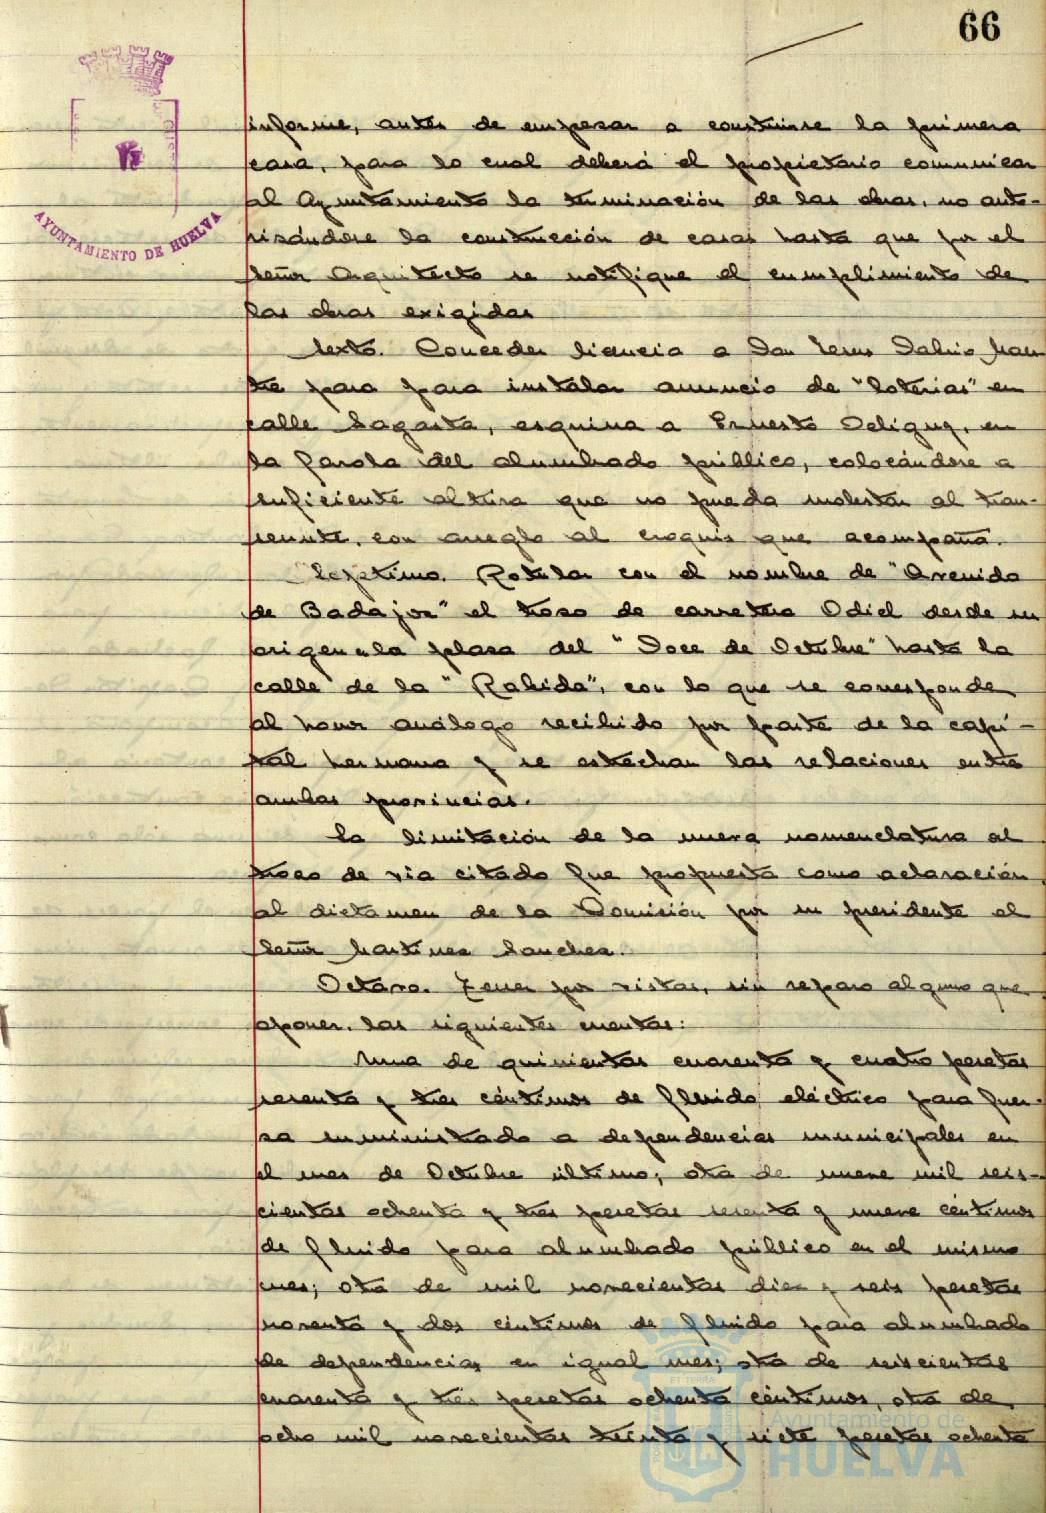 66
AYUNTAMIENTO DE HUELVA
informe, antes de empesar a construirse la primera
casa, para lo cual deberá el propietario comunicar
al Ayuntamiento la terminación de las obras, no auto-
risándose la construcción de casas hasta que por el
señor Arquitecto se notifique el cumplimiento de
las obras exigidas
Sexto. Conceder licencia a Don
para para instalar anuncio de "loterias" en
calle Sagasta, esquina a Ernesto Deligny, en
la farola del alumbrado público, colocándose a
suficiente altura que no pueda molestar al tran-
seunte, con areglo al croquis que acompaña.
Septimo. Rotular con el nombre de "Avenida
de Badajoz" el troso de carretera Odiel desde su
origen a la plasa del "Doce de Octubre" hasta la
calle de la "Rabida", con lo que se corresponde
al honor análogo recibido por parte de la capi-
tal hermana y se estrechan las relaciones entre
ambas provincias.
La limitación de la nueva nomenclatura al
troso de via citado fue propuesta como aclaración
al dictamen de la Comisión por su presidente el
Señor Martines Sanches.
Octavo. Tener por vistas, sin reparo alguno que
oponer, las siguientes cuentas:
Una de quinientas cuarenta y cuatro pesetas
sesenta y tres céntimos de fluido eléctrico para fuer-
sa suministrado a dependencias municipales en
el mes de Octubre último; otra de nueve mil seis-
cientas ochenta y tres pesetas sesenta y nueve céntimos
de fluido para alumbrado público en el mismo
mes; otra de mil novecientas dies y seis pesetas
noventa y dos céntimos de fluido para alumbrado
de dependencias en igual mes; otra de seiscientas
cuarenta y tres pesetas ochenta céntimos, otra de
ocho mil novecientas treinta y siete pesetas ochenta
Ayuntamiento de
HUELVA